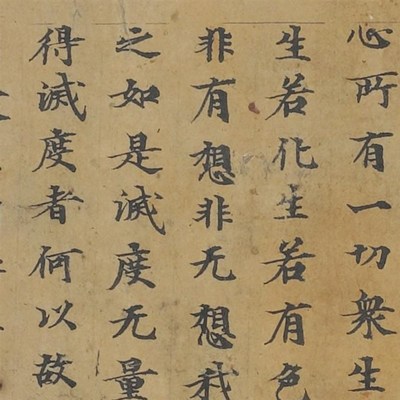 心所有一切衆生
生若化生若有色
非有想非无想我
之如是滅度无量
得滅度者何以故